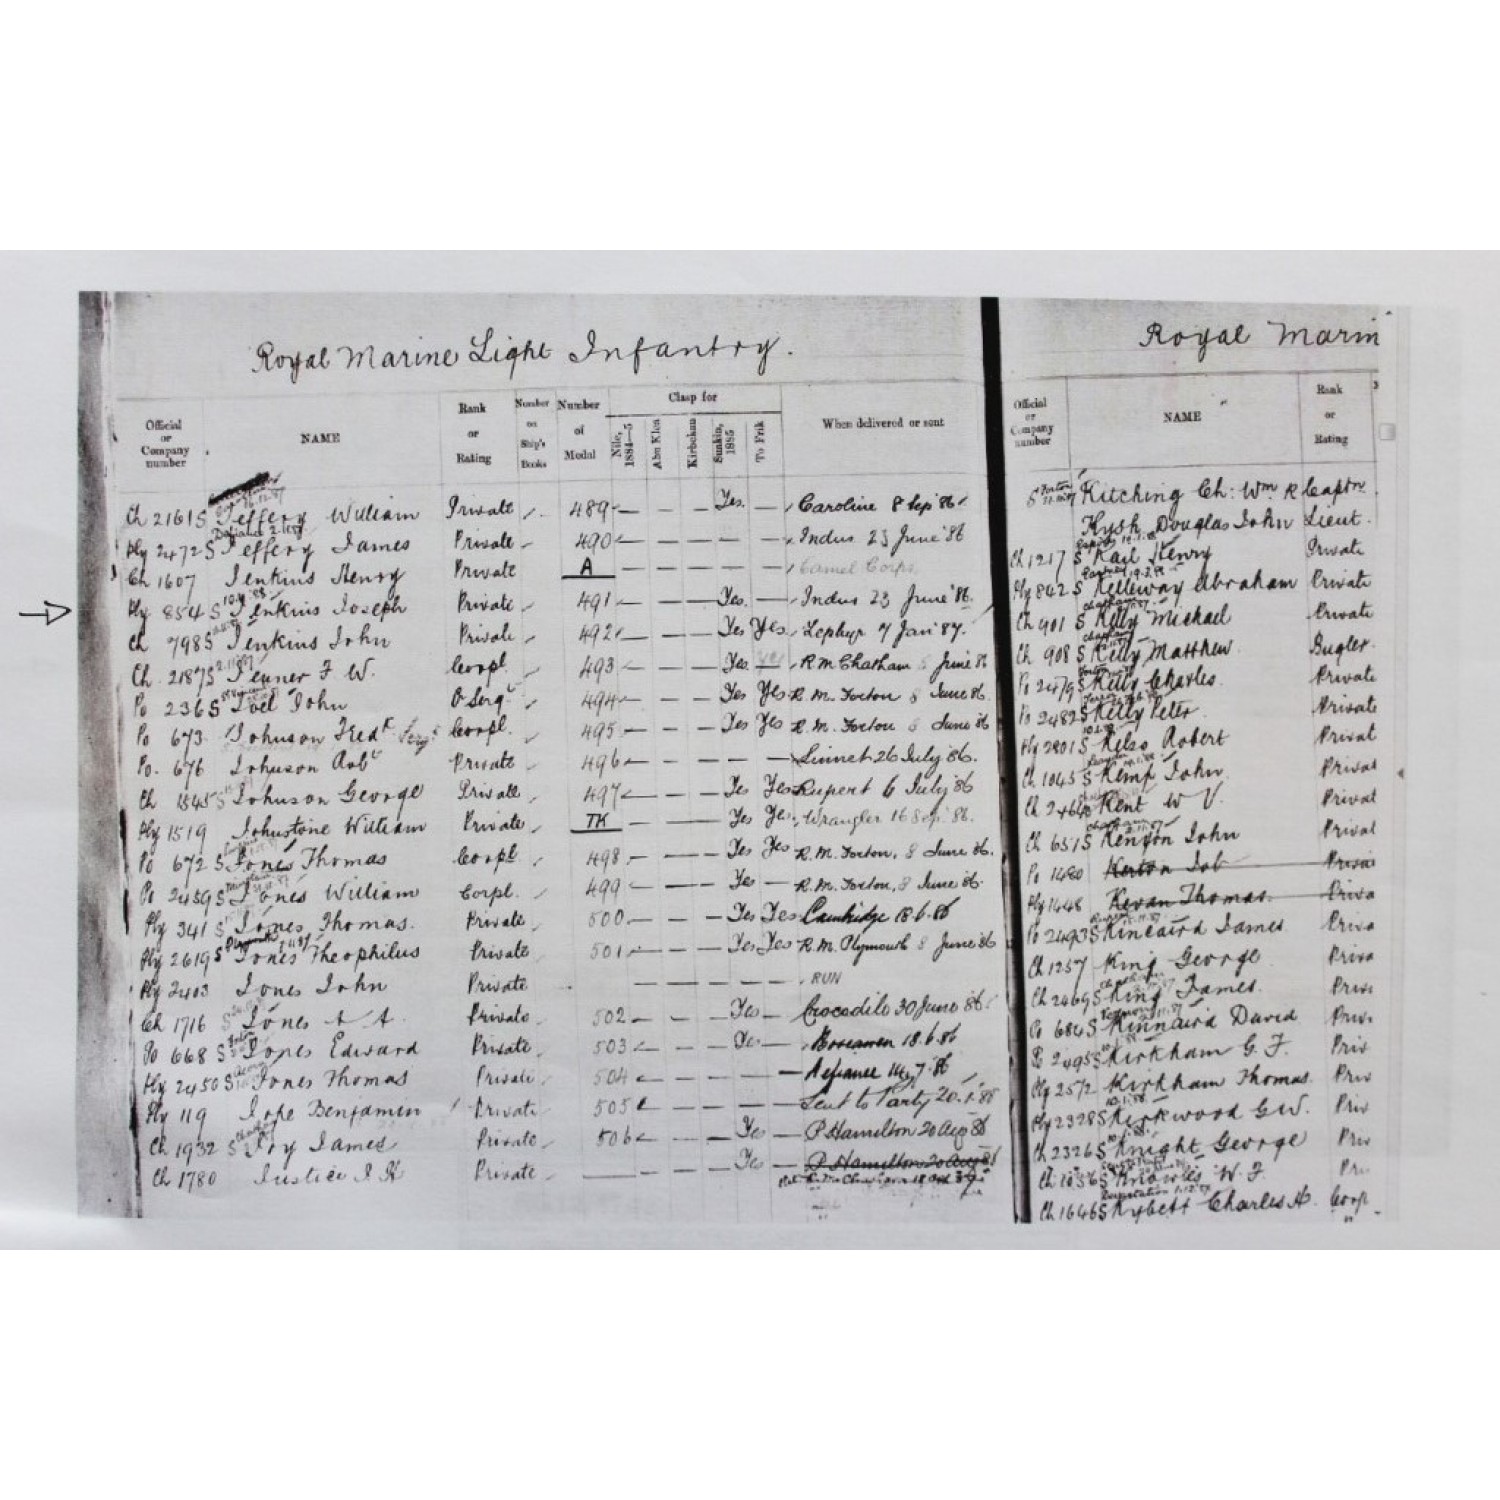 Royal Marine Light Infantry.
Official or Company number NAME Rank or Rating Number on Ship's Books Number of Medal Clasp for When delivered or sent
Nile, 1884–5 Abu Klea Kirbekan Suakin, 1885 To Frik
Ch 2161 S Jeffery William Private 489 — — — Yes. — Caroline 8 Sep '86
Defiance 2.11.87
Ply 2472 S Jeffery James Private 490 — — — — — Indus 23 June '86
Ch 1607 Jenkins Henry Private A — — — — — Camel Corps
Ply 854 S Jenkins Joseph Private 491 — — — Yes. — Indus 23 June '86.
Ch 798 S Jenkins John Private 492 — — — Yes Yes. Zephyr 7 Jan '87.
Ch 2187 S Jenner F W. Corpl. 493 — — — Yes — R M Chatham 5 June 86
Po 236 S Joel John Sergt 494 — — — Yes Yes R. M. Forton 8 June 86.
Po 673. Johnson Fredk Sergt Corpl. 495 — — — Yes Yes R. M. Forton 6 June 86
Po. 676 Johnson Robt Private 496 — — — — — Linnet 26 July '86.
Ch 1545 S Johnson George Private 497 — — — Yes Yes Rupert 6 July '86
Ply 1519 Johnstone William Private TK — — — Yes Yes. Wrangler 16 Sep '86.
Po 672 S Jones Thomas Corpl 498 — — — Yes Yes R.M. Forton, 8 June 86.
Po 2459 S Jones William Corpl. 499 — — — Yes — R.M. Forton, 8 June '86.
Ply 341 S Jones Thomas. Private 500 — — — Yes Yes Cambridge 18.6.86
Plymouth
Ply 2619 S Jones Theophilus Private 501 — — — Yes Yes R.M. Plymouth 8 June '86
Ply 2403 Jones John Private — — — — — RUN
Ch 1716 S Jones A A. Private 502 — — — Yes — Crocodile 30 June '86
Po 668 S Jones Edward Private 503 — — — Yes — Boscawen 18.6.86
Ply 2450 S Jones Thomas Private 504 — — — — — Defiance 14.7.86
Ply 119 Jope Benjamin Private 505 — — — — — Sent to Party 20.1.88
Ch 1932 S Joy James Private 506 — — — Yes — P. Hamilton 20 Aug 86
Ch 1780 Justice J H Private — — — — Yes — P. Hamilton 20 Aug 86
Royal Marin
Official or Company number NAME Rank or Rating
S Kitching Ch: Wm R Captn
Kysh Douglas John Lieut.
Ch 1217 S Kail Henry Private
Ply 842 S Kelleway Abraham Private
Chatham
Ch 901 S Kelly Michael Private
Ch 908 S Kelly Matthew. Bugler.
Po 2479 S Kelly Charles. Private
Po 2482 S Kelly Peter. Private
Ply 2801 S Kelso Robert Privat
Ch 1045 S Kemp John Privat
Ch 2464 Kent W V. Privat
Chatham
Ch 651 S Kenyon John Privat
Po 1480 Kerton Job
Ply 1448 Kevan Thomas. Priva
Po 2493 S Kincaird James Priva
Ch 1257 King George Priva
Ch 2469 S King James. Priv
Po 684 S Kinnaird David Priv
Po 2495 S Kirkham G. F. Priv
Ply 2572 Kirkham Thomas. Priv
10.1.88
Ply 2328 S Kirkwood G W. Priv
Ch 2326 S Knight George Priv
Ch 1036 S Knowles W. F. Pri
Ch 1646 S Kybett Charles A. Corp